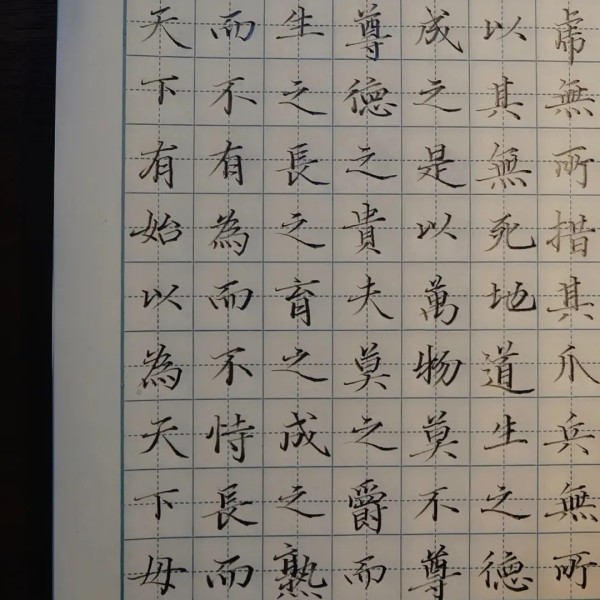 虎無所措其爪兵無所
以其無死地道生之德
成之是以萬物莫不尊
尊德之貴夫莫之爵而
生之長之育之成之熟
而不有為而不恃長而
天下有始以為天下母